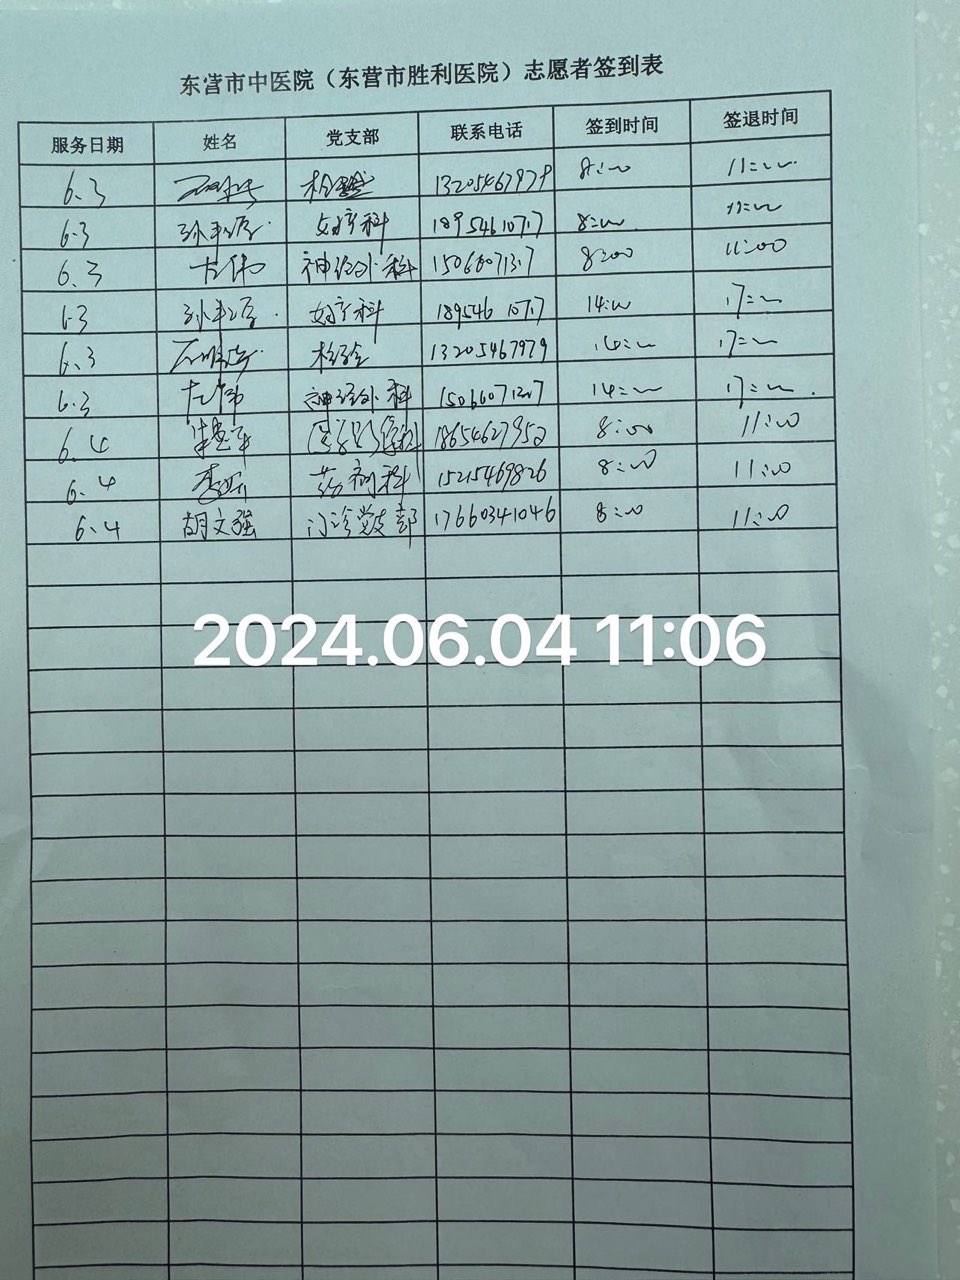 东营市中医院（东营市胜利医院）志愿者签到表
服务日期 姓名 党支部 联系电话 签到时间 签退时间
6.3 检验 13205467979 8:00 11:00
6.3 妇产科 18954610717 8:00 11:00
6.3 左伟 神经外科 15066071307 8:00 11:00
6.3 妇产科 18954610717 14:00 17:00
6.3 检验 13205467979 14:00 17:00
6.3 左伟 神经外科 15066071307 14:00 17:00
6.4 18654627952 8:00 11:00
6.4 药剂科 15215469826 8:00 11:00
6.4 胡文强 门诊党支部 17660341046 8:00 11:00
2024.06.04 11:06